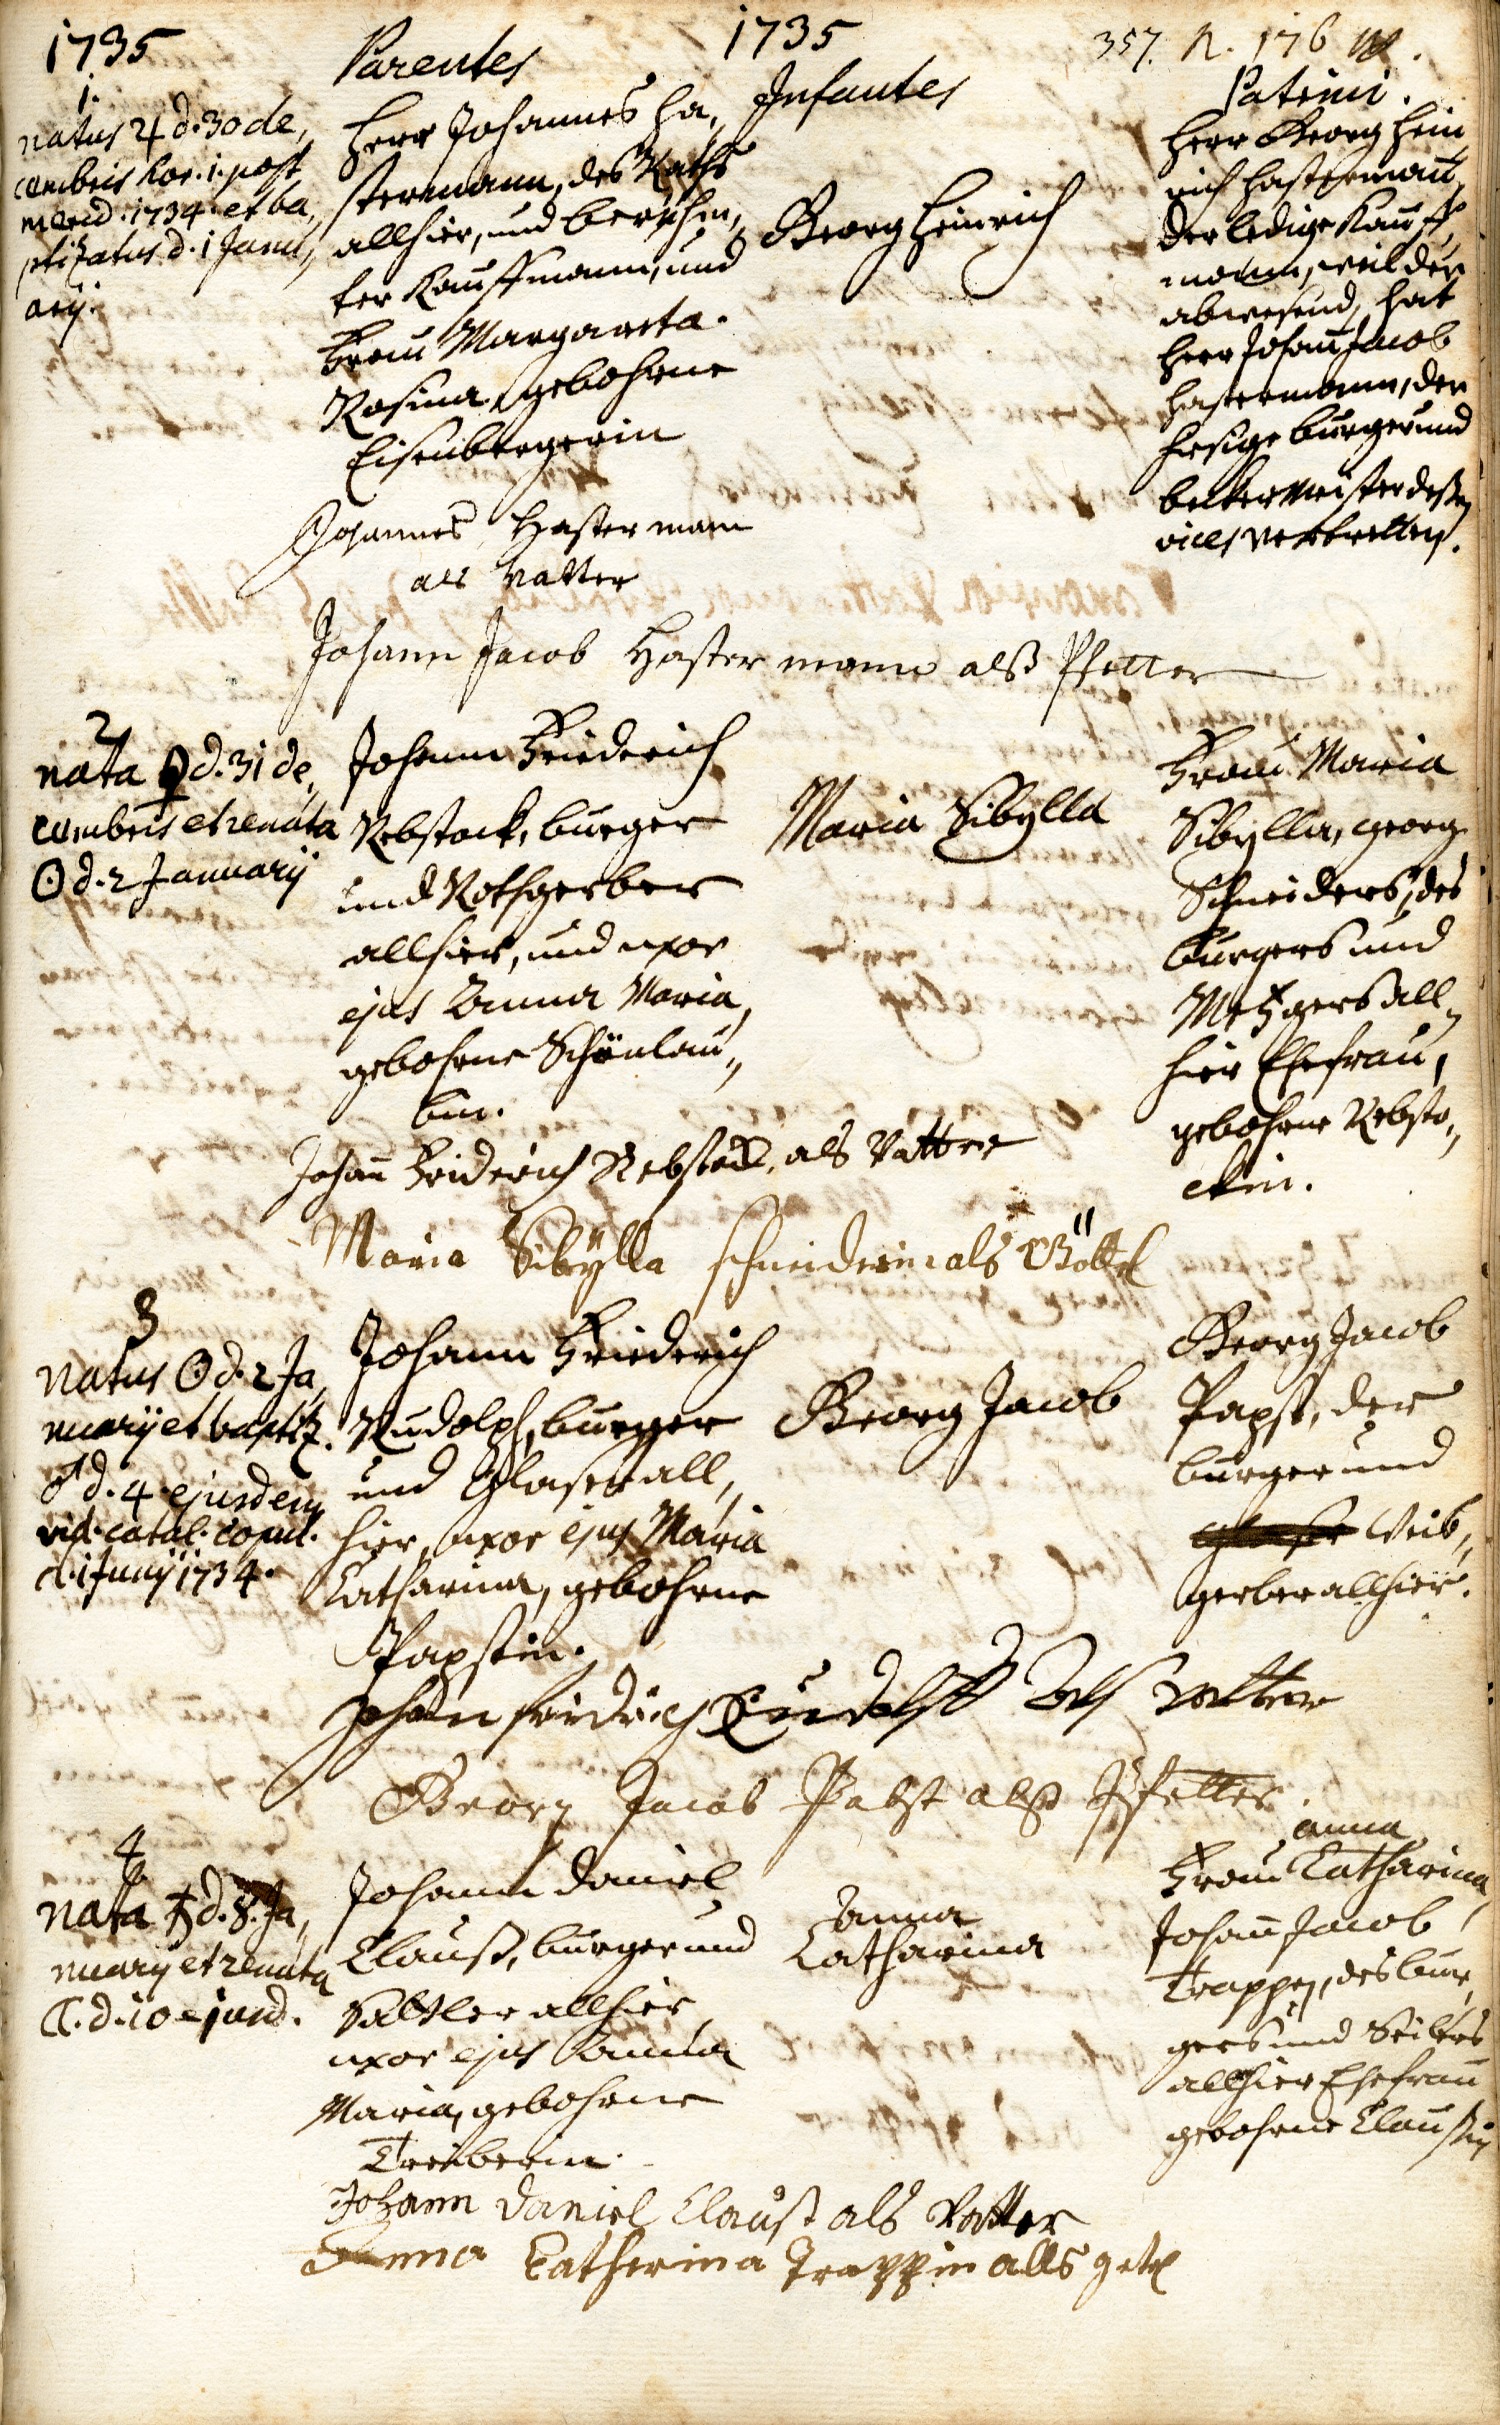 1735
1735
357. N. 176
Parentes
Infantes
Patrini.
1.
natus ♃ d. 30 de,
cembris hor. 1. post
merid. 1734. et ba,
ptizatus d. 1 Janu,
arij.
Herr Johannes Ha,
stermann, des Raths
allhier, und berühm,
ter Kauffmann, und
Frau Margareta
Rosina, gebohrne
Eisenbergerin
Georg Heinrich
Herr Georg Hein
rich Hastermann,
der ledige Kauff,
mann, weil der
abwesend, hat
Herr Johann Jacob
Hastermann, der
hiesige burger und
becker Meister deßen
vices vertretten.
Johannes Hasterman
als Vatter
Johann Jacob Hastermann alß Pfetter
2
nata ♀ d. 31 de,
cembris et renata
☉ d. 2 Januarij
Johann Friederich
Rebstock, burger
und Rothgerber
allhier, und uxor
ejus Anna Maria,
gebohrne Schönlau,,
bin.
Maria Sibylla
Frau Maria
Sibylla, Georg
Schneiders, des
burgers und
Metzgers all,,
hier Ehefrau,
gebohrne Rebsto,,
ckin.
Johann Friderich Rebstock, als Vatter
Maria Sibÿlla schneiderin als Göttel
3
natus ☉ d. 2 Ja,
nuarij et baptiz.
♂ d. 4 ejusdem
vid. catal. copul.
d. 1 Junij 1734.
Johann Friederich
Rudolph, burger
und Glaser all,
hier, uxor ejus Maria
Catharina, gebohrne
Papstin.
Georg Jacob
Georg Jacob
Papst, der
burger und
Weiß,,
gerber allhier.
Johann fridrich Rudolff Als vatter
Georg Jacob Pabst alß Pfetter
4
nata ♄ d. 8. Ja,
nuarij et renata
☾. d. 10 ejusd.
Johann Daniel
Clauß, burger und
Sattler allhier,
uxor ejus Anna
Maria, gebohrne
Treiberin.
Anna
Catharina
anna
Frau Catharina,
Johann Jacob
Trappen, des bur,
gers und Seilers
allhier Ehefrau
gebohrne Claußin
Johann Daniel Clauß als Vatter
Anna Catherina Trappin alls getel